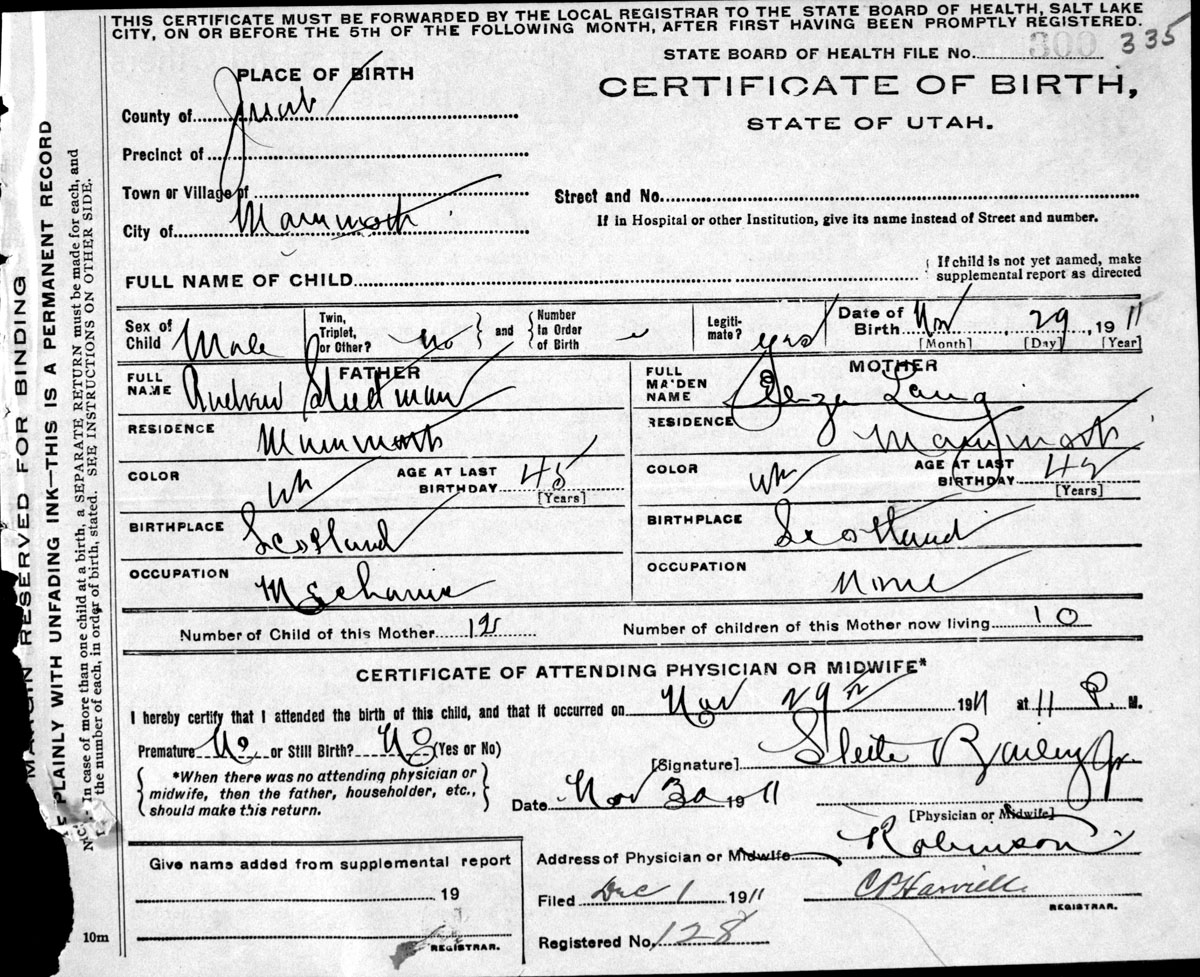 THIS CERTIFICATE MUST BE FORWARDED BY THE LOCAL REGISTRAR TO THE STATE BOARD OF HEALTH, SALT LAKE
CITY, ON OR BEFORE THE 5TH OF THE FOLLOWING MONTH, AFTER FIRST HAVING BEEN PROMPTLY REGISTERED.
STATE BOARD OF HEALTH FILE No. 300 335
PLACE OF BIRTH
CERTIFICATE OF BIRTH,
STATE OF UTAH.
County of Juab
Precinct of
Town or Village of
Street and No.
City of Mammoth
If in Hospital or other Institution, give its name instead of Street and number.
FULL NAME OF CHILD
If child is not yet named, make
supplemental report as directed
Sex of Child Male
Twin, Triplet, or Other? No and Number In Order of Birth
Legiti-mate? Yes
Date of Birth Nov 29, 1911
[Month] [Day] [Year]
FATHER
FULL NAME
MOTHER
FULL MAIDEN NAME Lang
RESIDENCE Mammoth
RESIDENCE Mammoth
COLOR Wh AGE AT LAST BIRTHDAY 45 [Years]
COLOR Wh AGE AT LAST BIRTHDAY [Years]
BIRTHPLACE Scotland
BIRTHPLACE Scotland
OCCUPATION Mechanic
OCCUPATION None
Number of Child of this Mother 12
Number of children of this Mother now living 10
CERTIFICATE OF ATTENDING PHYSICIAN OR MIDWIFE*
I hereby certify that I attended the birth of this child, and that it occurred on Nov 29 1911 at 11 P. M.
Premature No or Still Birth? No (Yes or No)
[Signature] Steele Bailey Jr.
*When there was no attending physician or
midwife, then the father, householder, etc.,
should make this return.
Date Nov 30 1911
[Physician or Midwife]
Give name added from supplemental report
Address of Physician or Midwife Robinson
19
Filed Dec 1 1911
REGISTRAR.
REGISTRAR.
Registered No. 128
10m
MARGIN RESERVED FOR BINDING
PLAINLY WITH UNFADING INK—THIS IS A PERMANENT RECORD
In case of more than one child at a birth, a SEPARATE RETURN must be made for each, and
the number of each, in order of birth, stated. SEE INSTRUCTIONS ON OTHER SIDE.